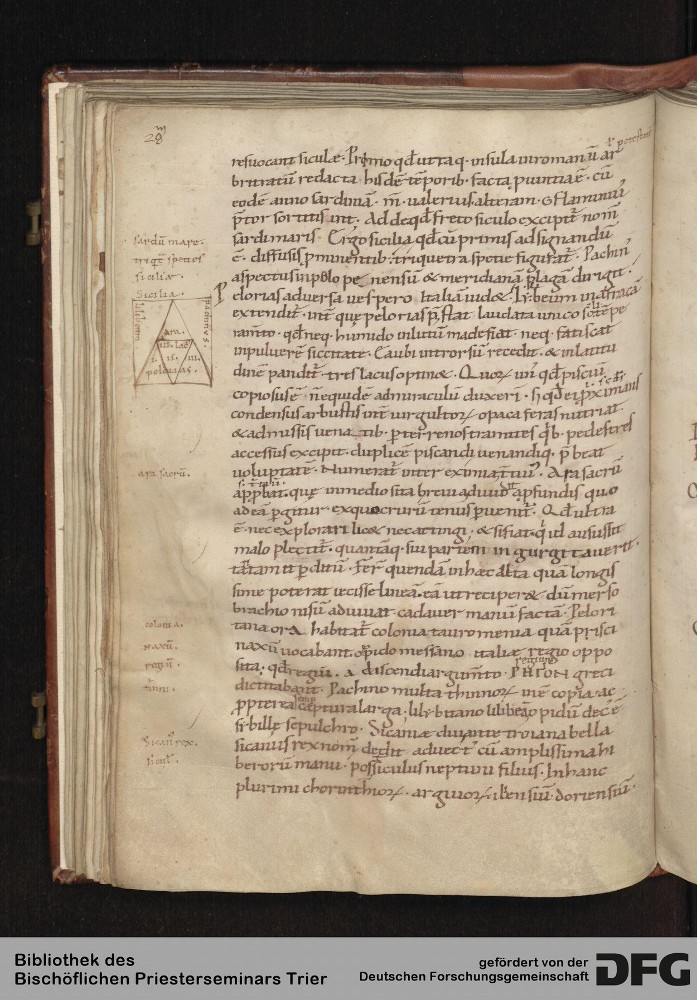 28
resuocant siculæ. Primo qđ utraq. insula in romanū ar
bitratū redacta hisdē tēporib. facta puintia ē. cū
eodē anno sardiniā. m. ualerius alteram. G Flaminiu
p̄tor sortiti sint. Ad deqđ freto siculo excipit̄ nom̄
sardi maris. Ergo sicilia qđ cū primis adsignandū
ē. diffusis pminentib. triquetra spetie figurat̄. Pachin
aspectus in pelo pe nensiū & meridianā plagā dirigit.
Pelorias aduersa uespero italiam uid&. Lilybeum in africā
extendit̄. int̄ que pelorias p̄stat laudata unico soli tempe
ramto. qđ neq. humido in lutum madefiat. neq. fatiscat
in puluerē siccitate. Ea ubi introrsū recedit. & in latitu
dinē pandit̄ tres lacus optin&. Quorum unū qđ piscui
copiosus ē. n̄ equidē ad miraculū duxeri. s; qđ ei proximans
condensus arbustis int̄ uirgultorum opaca feras nutriat
& admissis uenatib. p terrenos tramites qib. pedestres
accessus excipit. duplicē piscandi uenandiq. p̄beat
uoluptatē. Numerat̄ inter eximia tiuū. Ara sacrū
app̄bat. que in medio sita breui adiuuid& a pfundis quo
ad eā pgitur. ex quo crurū tenus puenit̄. Qđ ultra
ē. nec explorari lic& nec attingi. & si fiat. qi id ausus sit
malo plectit̄. quantāq. sui partem in gurgite auerit
tantam it p ditum. Fer quendā in hæc alta quā longis
sime poterat iecisse lineā. eā ut reciper&. dū merso
brachio nisum adiuuat. cadauer manū factā. Pelori
tana ora habitat̄ colonia tauromenia quā prisci
naxū uocabant. oppido messano italiæ regio oppo
sita. qđ regiū. a deiscendi argumto. PHΓON greci
dictitabant. Pachino multa thinnorum inē copia. ac
ppterea semp captura larga. lilybitano lilibeao pidū dec ē
sibille sepulchro. Sicaniæ diu ante troiana bella
sicanius rex nom̄ dedit aduect cū amplissima hi
berorū manu. post siculus neptuni filius. In hanc
plurimi chorinthiorum. argiuorum. iliensiū. doriensiū.
sardū mare.
triqet speties
siciliæ.
Sicilia.
ara sacrū.
colonia.
naxū.
regiū.
Sicanꝰ rex.
sicul.
Bibliothek des
Bischöflichen Priesterseminars Trier
gefördert von der
Deutschen Forschungsgemeinschaft
DFG